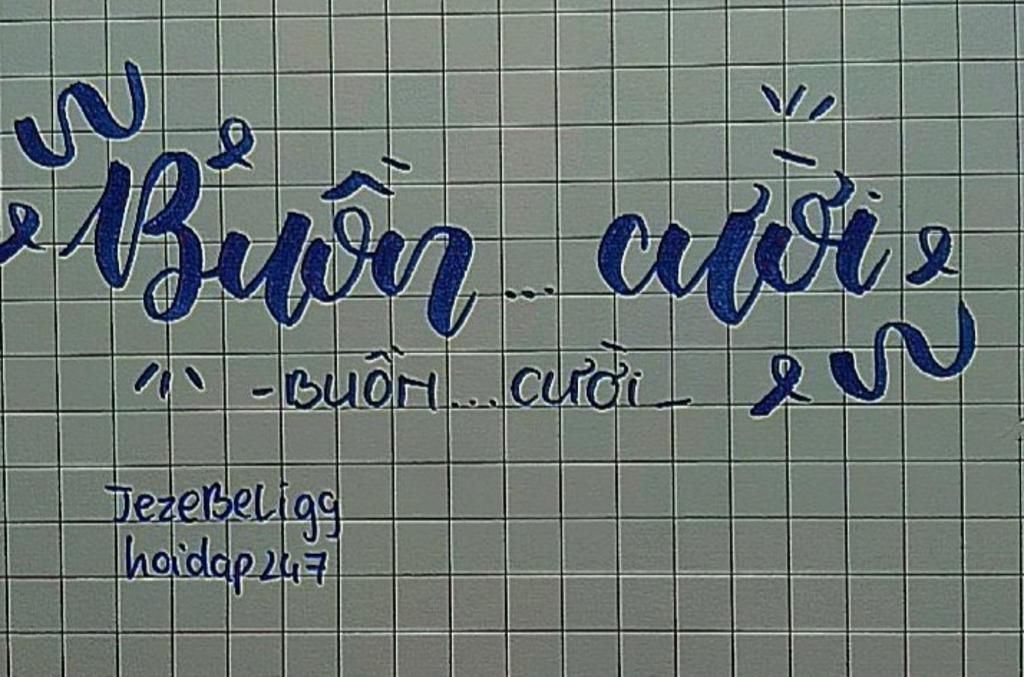 Buồn... cười
- BUỒN... CƯỜi _
JezeBeligg
hoidap247